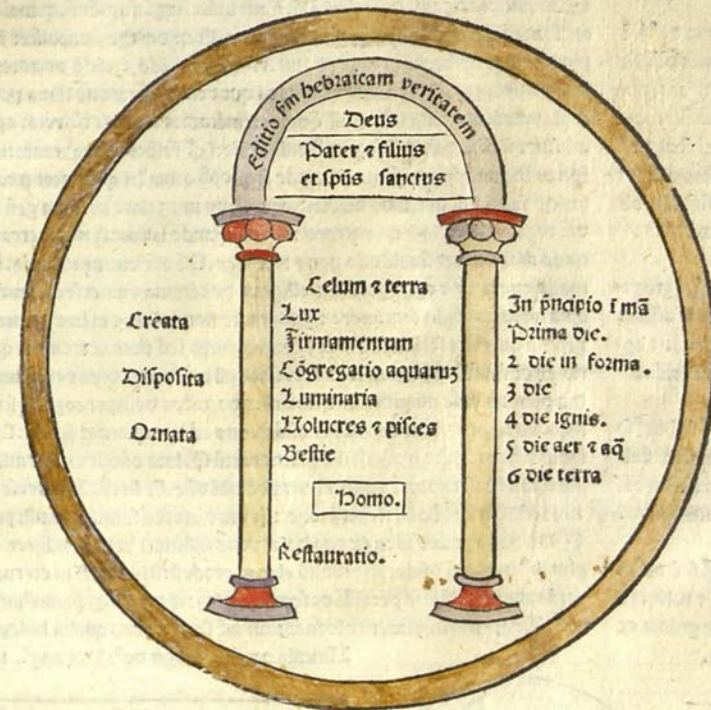 Editio fm hebraicam veritatem
Deus
Pater ⁊ filius
et spūs sanctus
Creata
Disposita
Ornata
Celum ⁊ terra
Lux
Firmamentum
Cōgregatio aquaruꝫ
Luminaria
Uolucres ⁊ pisces
Bestie
Homo.
Restauratio.
In pͥncipio ī mā
Prima die.
2 die in forma.
3 die
4 die ignis.
5 die aer ⁊ aq̄
6 die terra